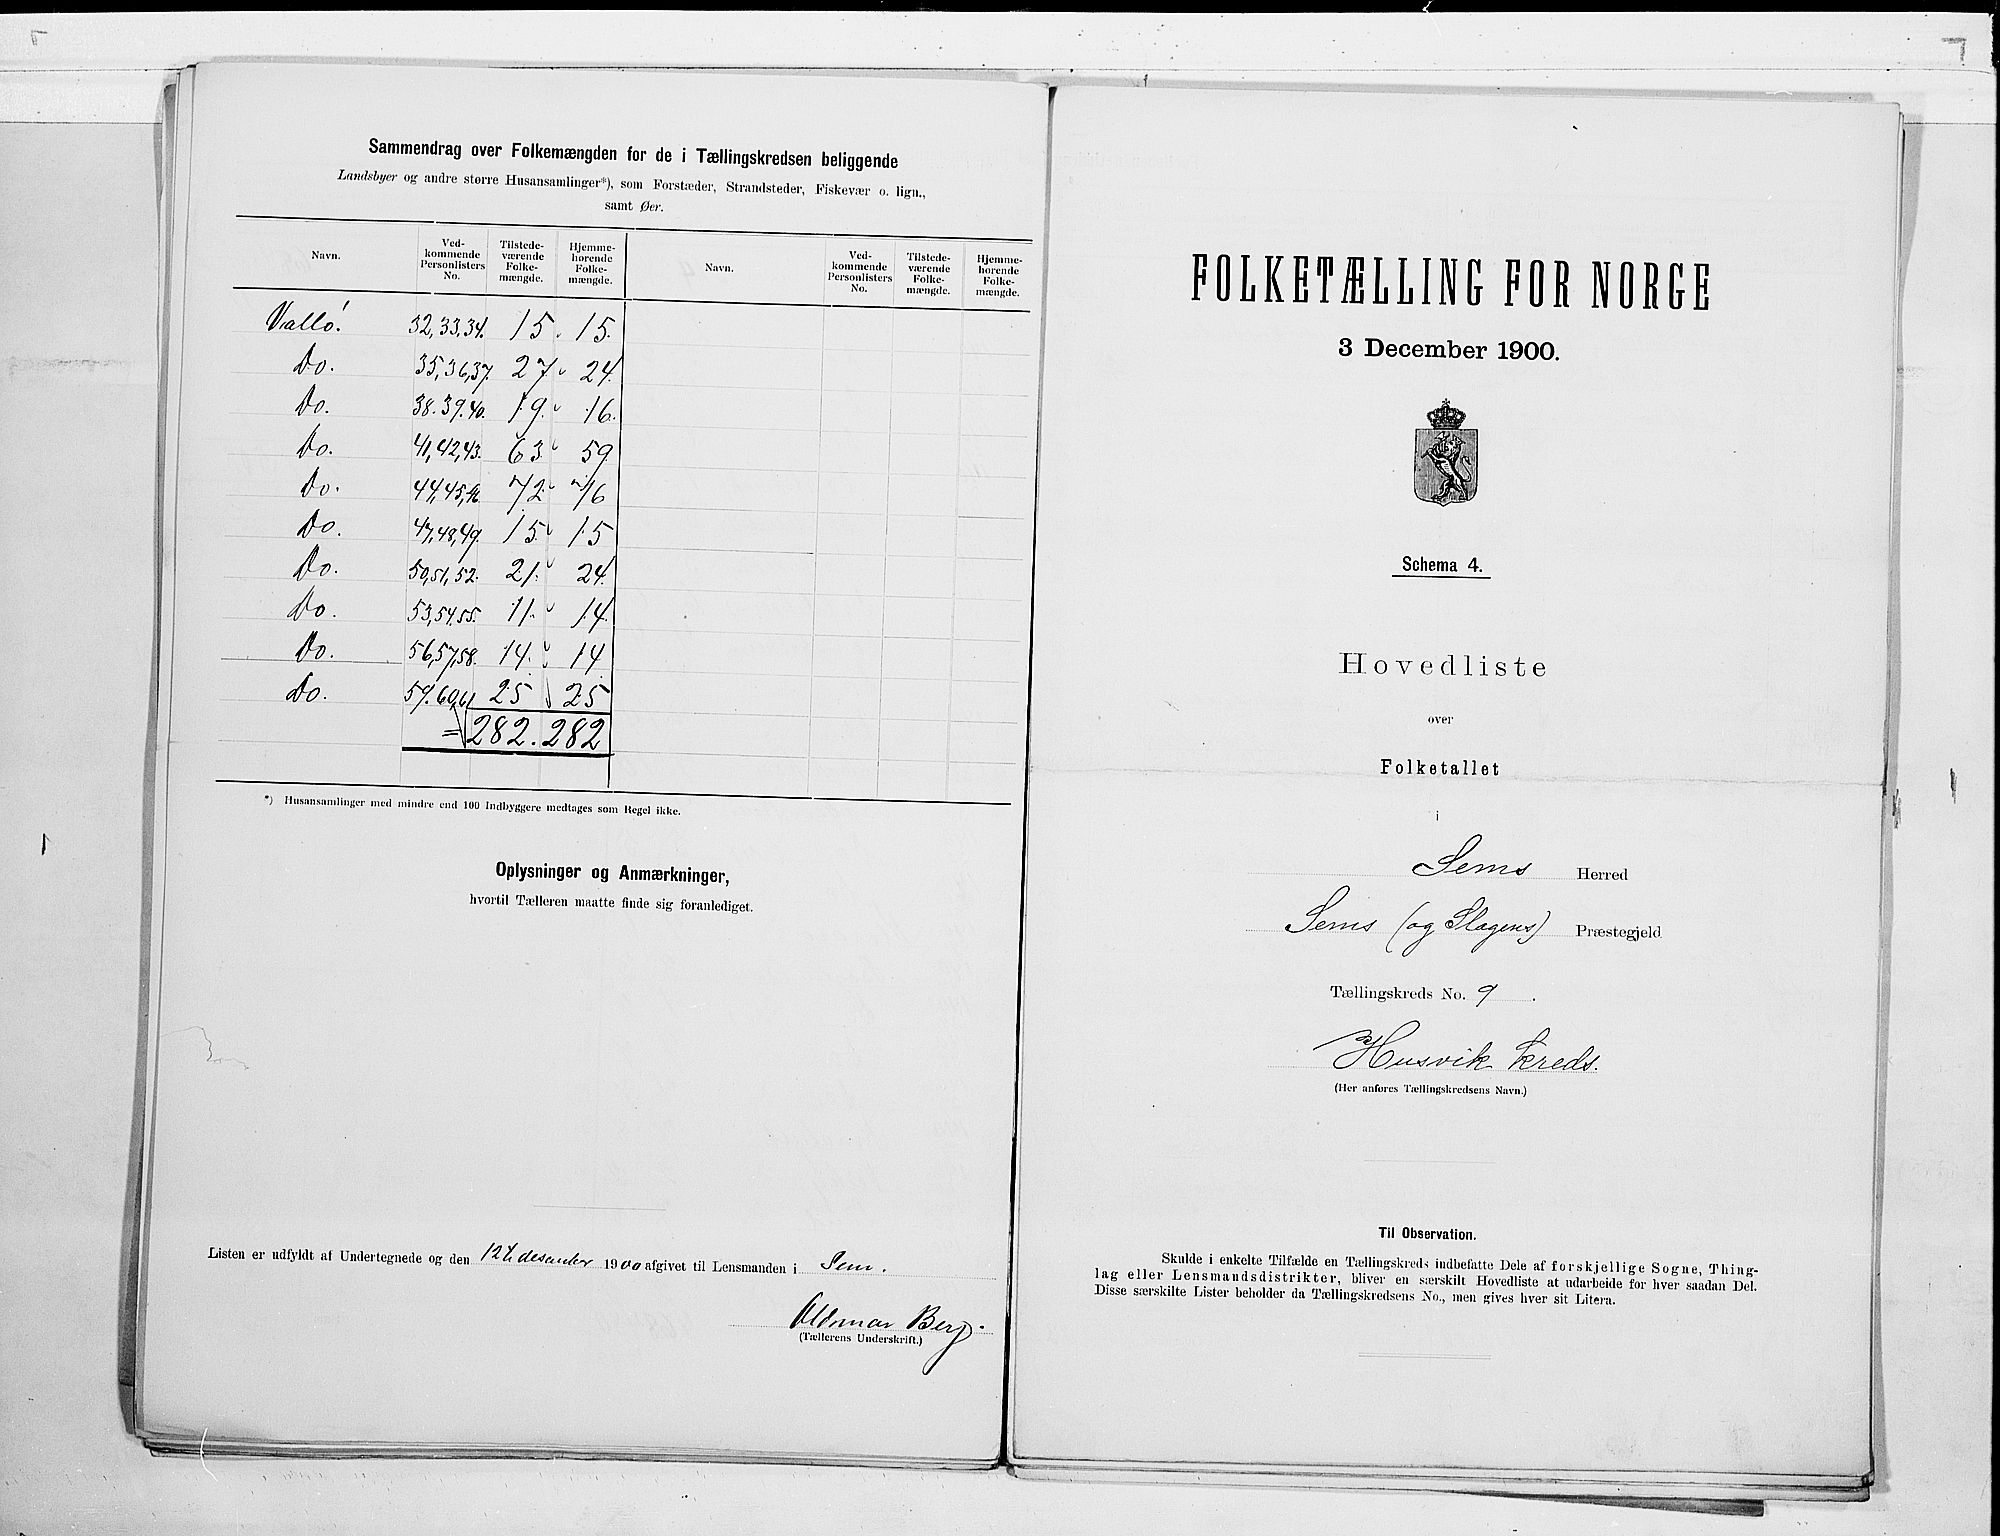 Sammendrag over Folkemængden for de i Tællingskredsen beliggende
Landsbyer og andre større Husansamlinger*), som Forstæder, Strandsteder, Fiskevær o. lign.,
samt Øer.
Navn. Ved-kommende Personlisters No. Tilstede-værende Folke-mængde. Hjemme-hørende Folke-mængde. Navn. Ved-kommende Personlisters No. Tilstede-værende Folke-mængde. Hjemme-hørende Folke-mængde.
Vallö. 32,33,34. 15. 15.
Do. 35,36,37. 27 24.
Do. 38.39.40. 19. 16.
Do. 41,42,43. 63 59
Do. 44,45,46. 72. 76
Do. 47,48,49. 15 15
Do. 50,51,52. 21. 24.
Do. 53,54.55. 11. 14.
Do. 56,57,58. 14. 14
Do. 59.60,61 25 25
= 282. 282
*) Husansamlinger med mindre end 100 Indbyggere medtages som Regel ikke.
Oplysninger og Anmærkninger,
hvortil Tælleren maatte finde sig foranlediget.
Listen er udfyldt af Undertegnede og den 12te desember 1900 afgivet til Lensmanden i Sem.
Aldmar Berg.
(Tællerens Underskrift.)
FOLKETÆLLING FOR NORGE
3 December 1900.
Schema 4.
Hovedliste
over
Folketallet
i
Sems Herred
Sems (og Slagens) Præstegjeld
Tællingskreds No. 9.
Husvik kreds.
(Her anføres Tællingskredsens Navn.)
Til Observation.
Skulde i enkelte Tilfælde en Tællingskreds indbefatte Dele af forskjellige Sogne, Thing-
lag eller Lensmandsdistrikter, bliver en særskilt Hovedliste at udarbeide for hver saadan Del.
Disse særskilte Lister beholder da Tællingskredsens No., men gives hver sit Litera.